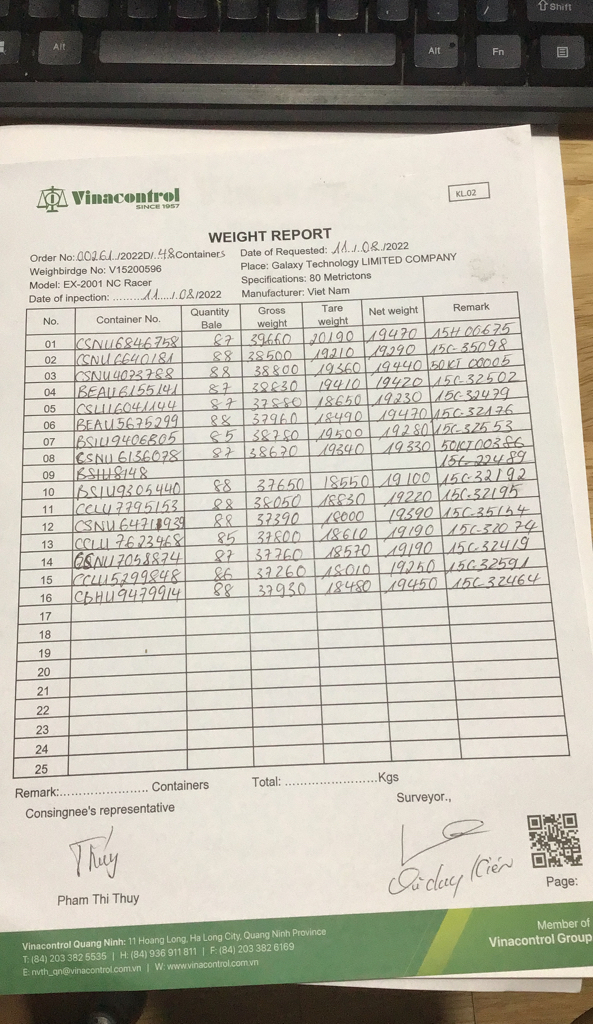 Shift
Alt
Alt
Fn
Vinacontrol
SINCE 1957
KL.02
WEIGHT REPORT
Order No: 00261/2022D/.48 Containers Date of Requested: 11/08/2022
Weighbirdge No: V15200596 Place: Galaxy Technology LIMITED COMPANY
Model: EX-2001 NC Racer Specifications: 80 Metrictons
Date of inpection: .........11..../08/2022 Manufacturer: Viet Nam
No. Container No. Quantity Bale Gross weight Tare weight Net weight Remark
01 CSNU6846758 87 39660 20190 19470 15H 00675
02 CSNU6640181 88 38500 19210 19290 15C-35098
03 CSNU4073788 88 38800 19360 19440 50KT 00005
04 BEAU6155141 87 38830 19410 19420 15C-32502
05 CSLU6041144 87 37880 18650 19230 15C-32479
06 BEAU5675299 88 37960 18490 19470 15C-32176
07 BSIU9406805 85 38780 19500 19280 15C-32553
08 CSNU6136078 87 38670 19340 19330 50KT00386
09 BSIU8148 15C-22489
10 BSIU9305440 88 37650 18550 19100 15C-32192
11 CCLU7795153 88 38050 18830 19220 15C-32195
12 CSNU6471939 88 37390 18000 19390 15C-35154
13 CCLU7623468 85 37800 18610 19190 15C-32074
14 CSNU7058874 87 37760 18570 19190 15C-32419
15 CCLU5299848 86 37260 18010 19250 15C-32591
16 CBHU9479914 88 37930 18480 19450 15C-32464
17
18
19
20
21
22
23
24
25
Remark:...................... Containers Total: .......................Kgs
Consingnee's representative Surveyor.,
Thúy
Pham Thi Thuy
Page:
Vinacontrol Quang Ninh: 11 Hoang Long, Ha Long City, Quang Ninh Province
T: (84) 203 382 5535 | H: (84) 936 911 811 | F: (84) 203 382 6169
E: nvth_qn@vinacontrol.com.vn | W: www.vinacontrol.com.vn
Member of
Vinacontrol Group